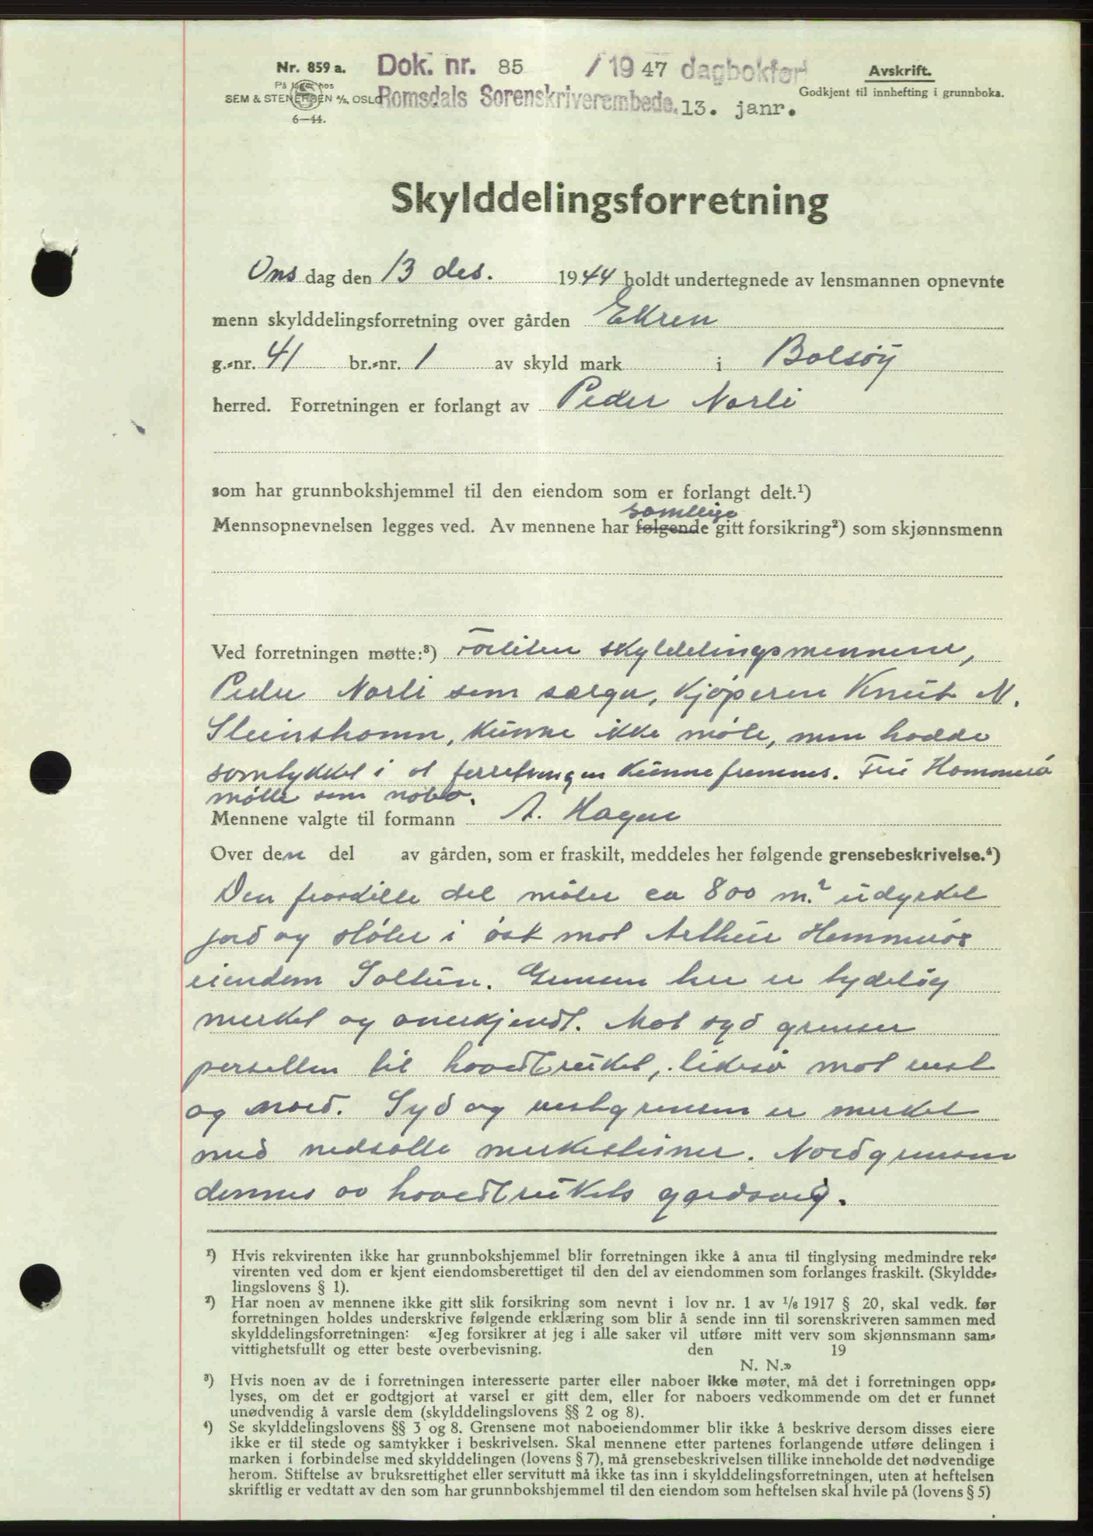 Nr. 859 a. Dok. nr. 85 /1947 dagbokført Avskrift.
På lager hos
SEM & STENERSEN A/S, OSLO Romsdals Sorenskriverembede. 13. janr. Godkjent til innhefting i grunnboka.
6—44.
Skylddelingsforretning
Ons dag den 13 des. 1944 holdt undertegnede av lensmannen opnevnte
menn skylddelingsforretning over gården Ekren
g.-nr. 41 br.-nr. 1 av skyld mark i Bolsøy
herred. Forretningen er forlangt av Peder Norli
som har grunnbokshjemmel til den eiendom som er forlangt delt.¹)
samtlige
Mennsopnevnelsen legges ved. Av mennene har følgende gitt forsikring²) som skjønnsmenn
Ved forretningen møtte:³) foruten skylddelingsmennene,
Peder Norli som sælger, kjøperen Knut M.
kunne ikke møte, men hadde
samtykket i at forretningen kunne fremmes. Fru Hammerø
møtte som nabo.
Mennene valgte til formann A. Hagen
Over den del av gården, som er fraskilt, meddeles her følgende grensebeskrivelse.⁴)
Den fraskilte del måler ca 800 m.² udyrket
jord og støter i øst mot Arthur Hammerøs
eiendom Soltun. Grensen her er tydelig
merket og anerkjendt. Mot syd grenser
parsellen til hovedbruket, likeså mot vest
og nord. Syd og vestgrensen er merket
med nedsatte merkestener. Nordgrensen
dannes av hovedbrukets gardsveig.
¹) Hvis rekvirenten ikke har grunnbokshjemmel blir forretningen ikke å anta til tinglysing medmindre rek-
virenten ved dom er kjent eiendomsberettiget til den del av eiendommen som forlanges fraskilt. (Skyldde-
lingslovens § 1).
²) Har noen av mennene ikke gitt slik forsikring som nevnt i lov nr. 1 av ¹/₆ 1917 § 20, skal vedk. før
forretningen holdes underskrive følgende erklæring som blir å sende inn til sorenskriveren sammen med
skylddelingsforretningen: «Jeg forsikrer at jeg i alle saker vil utføre mitt verv som skjønnsmann sam-
vittighetsfullt og etter beste overbevisning. den 19
N. N.»
³) Hvis noen av de i forretningen interesserte parter eller naboer ikke møter, må det i forretningen opp-
lyses, om det er godtgjort at varsel er gitt dem, eller for naboers vedkommende om det er funnet
unødvendig å varsle dem (skylddelingslovens §§ 2 og 8).
⁴) Se skylddelingslovens §§ 3 og 8. Grensene mot naboeiendommer blir ikke å beskrive dersom disses eiere
ikke er til stede og samtykker i beskrivelsen. Skal mennene etter partenes forlangende utføre delingen i
marken i forbindelse med skylddelingen (lovens § 7), må grensebeskrivelsen tillike inneholde det nødvendige
herom. Stiftelse av bruksrettighet eller servitutt må ikke tas inn i skylddelingsforretningen, uten at heftelsen
skriftlig er vedtatt av den som har grunnbokshjemmel til den eiendom som heftelsen skal hvile på (lovens § 5)